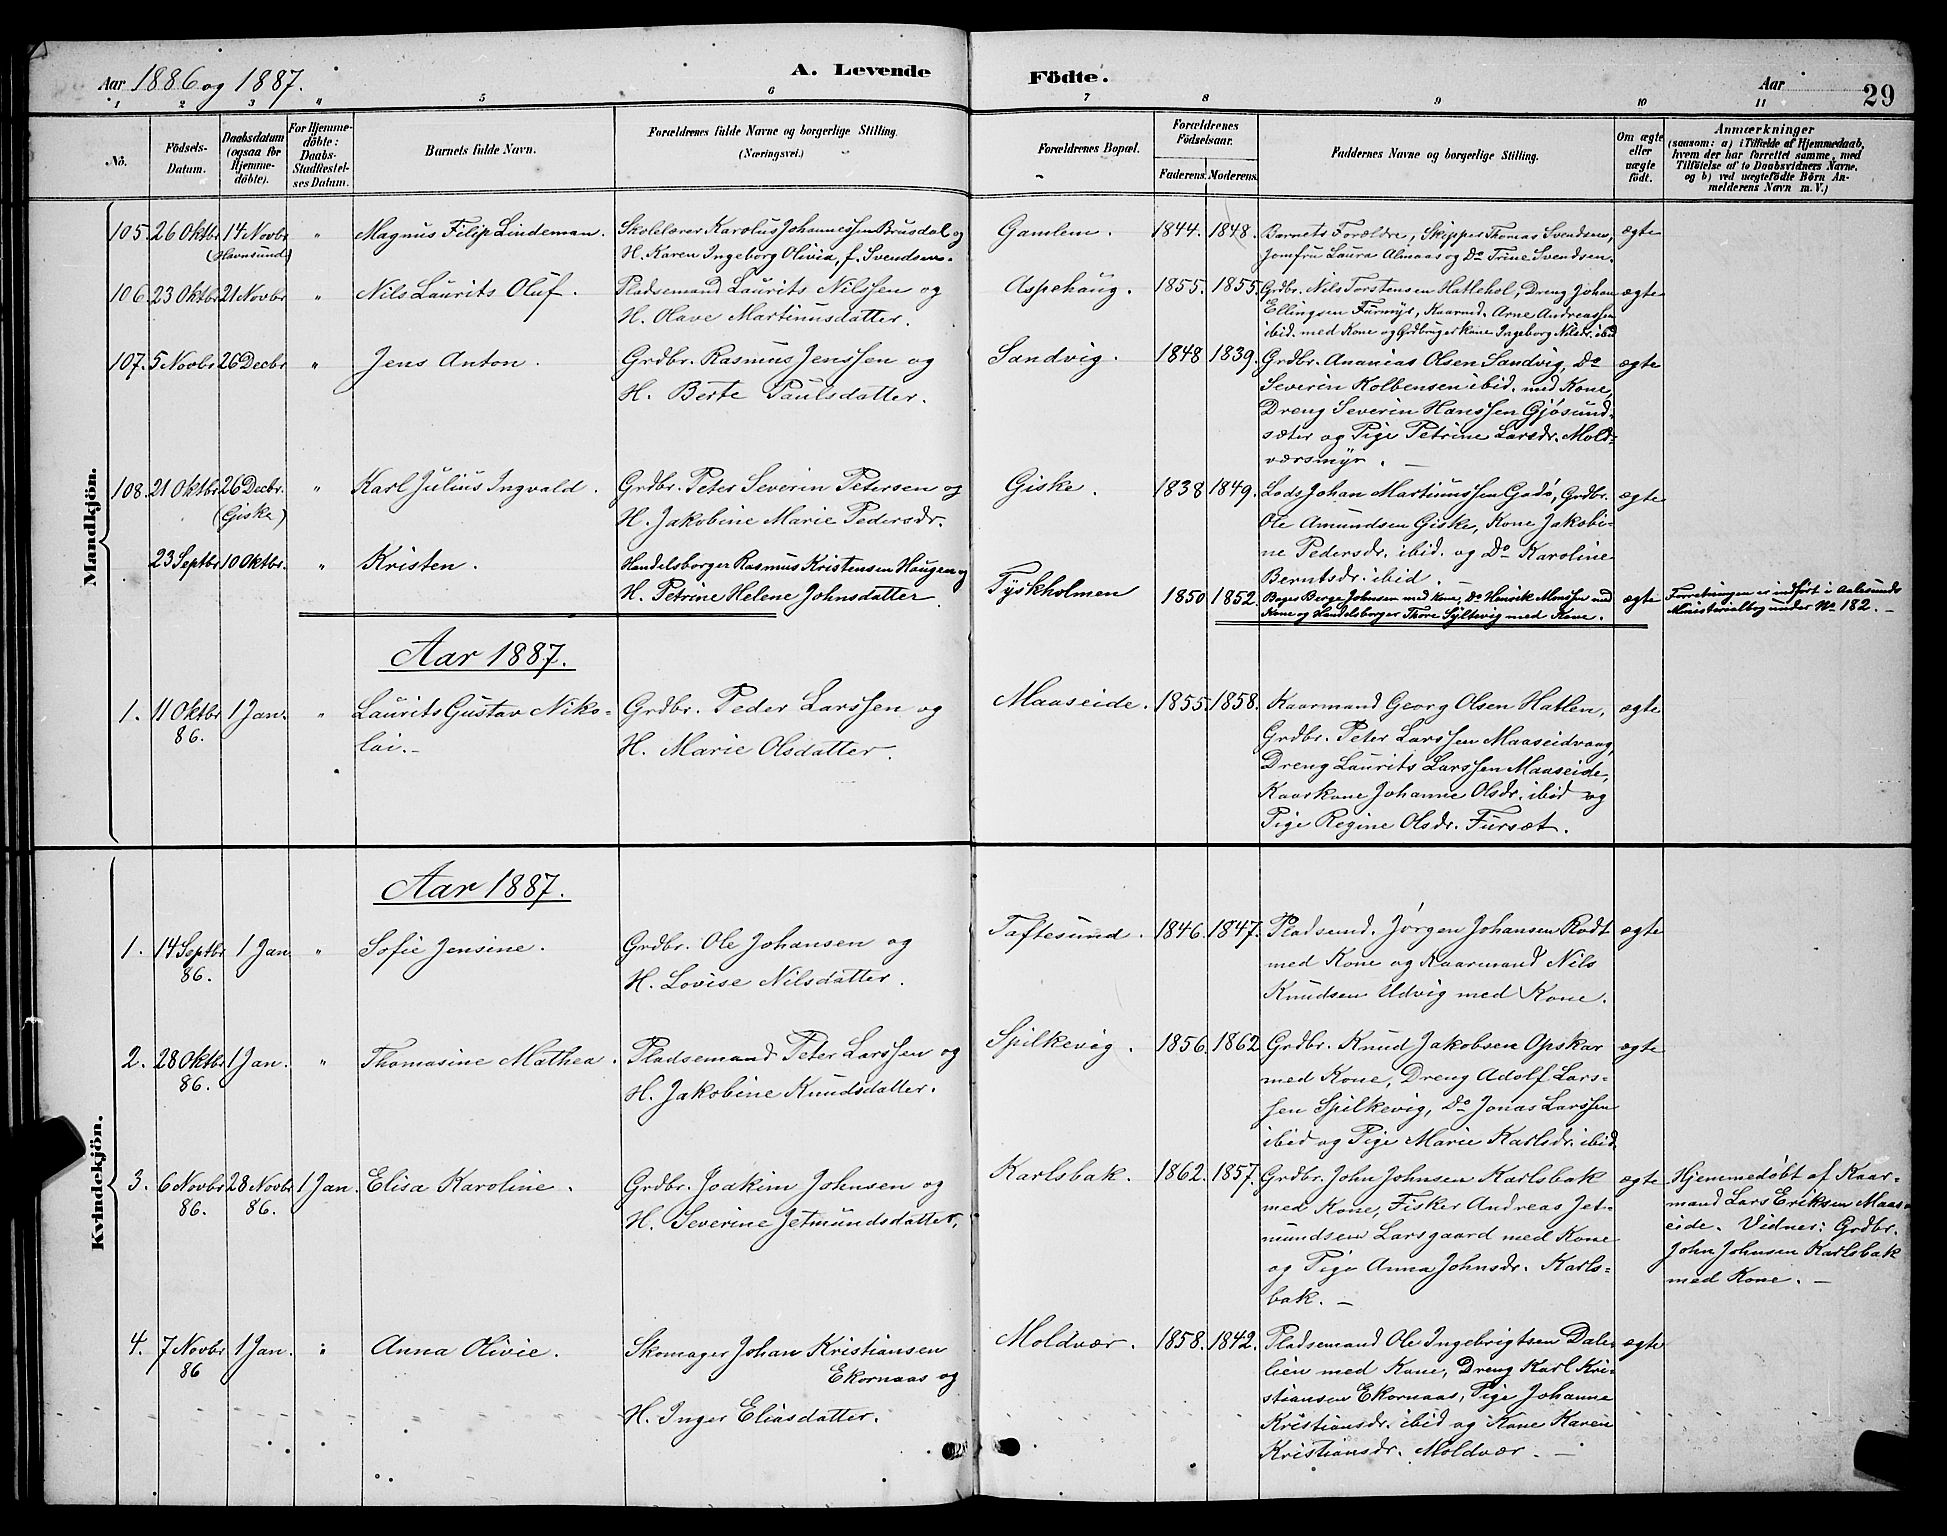 Aar 1886 og 1887.
A. Levende Födte.
Aar
29
1 2 3 " 5 6 7 8 9 10 11
No.
Födsels-Datum.
Daabsdatum (ogsaa for Hjemme-döbte).
For Hjemme-döbte: Daabs-Stadfæstel-ses Datum.
Barnets fulde Navn.
Forældrenes fulde Navne og borgerlige Stilling. (Næringsvei.)
Forældrenes Bopæl.
Forældrenes Födselsaar.
Faderens. Moderens.
Faddernes Navne og borgerlige Stilling.
Om ægte eller uægte födt.
Anmærkninger
(saasom: a) i Tilfælde af Hjemmedaab,
hvem der har forrettet samme, med
Tilföielse af to Daabsvidners Navne,
og b) ved uægtefödte Börn An-
melderens Navn m. V.)
Mandkjön.
105. 26 Oktbr 14 Novbr (Havnsund) " Magnus Filip Lindeman.
Skolelærer Karolus Johannessen Brusdal og
H. Karen Ingeborg Olivia, f. Svendsen.
Gamlem. 1844. 1848.
Barnets Forældre, Skipper Thomas Svendsen,
Jomfru Laura Almaas og Do Trine Svendsen.
ægte
106. 23 Oktbr 21 Novbr " Nils Laurits Oluf.
Pladsemand Laurits Nilssen og
H. Olave Martinusdatter.
Aspehaug. 1855. 1855.
Grdbr. Nils Torstensen Hatlehol, Dreng Johan
Ellingsen Furmyr, Kaarmd. Arne Andreassen
ibid. med Kone og Grdbrugerkone Ingeborg Nilsdr. ibid
ægte
107. 5 Novbr 26 Decbr " Jens Anton.
Grdbr. Rasmus Jenssen og
H. Berte Paulsdatter.
Sandvig. 1848 1839.
Grdbr. Ananias Olsen Sandvig, Do
Severin Kolbensen ibid. med Kone,
Dreng Severin Hanssen Gjøsund-
sæter og Pige Petrine Larsdr. Mold-
værsmyr.
ægte
108. 21 Oktbr 26 Decbr. (Giske) " Karl Julius Ingvald.
Grdbr. Peter Severin Petersen og
H. Jakobine Marie Pedersdr.
Giske. 1838 1849.
Lods Johan Martinussen Godø, Grdbr.
Ole Amundsen Giske, Kone Jakobi-
ne Pedersdr. ibid. og Do Karoline
Berntsdr. ibid.
ægte
23 Septbr 10 Oktbr. " Kristen.
Handelsborger Rasmus Kristensen Haugen og
H. Petrine Helene Johnsdatter.
Tyskholmen 1850 1852.
Bager Berge Johnsen med Kone, Do Henrik Monssen med
Kone og Handelsborger Thore Syltevig med Kone.
ægte
Forretningen er indført i Aalesunds
Ministerialbog under No 182. –
Aar 1887.
1. 11 Oktbr 86. 1 Jan. " Laurits Gustav Niko-
lai.–
Grdbr. Peder Larssen og
H. Marie Olsdatter.
Maaseide. 1855. 1858.
Kaarmand Georg Olsen Hatlen,
Grdbr. Peter Larssen Maaseidvaag,
Dreng Laurits Larssen Maaseide,
Kaarkone Johanne Olsdr. ibid og
Pige Regine Olsdr. Fursæt.
ægte
Kvindekjön.
Aar 1887.
1. 14 Septbr 86. 1 Jan " Sofie Jensine.
Grdbr. Ole Johansen og
H. Lovise Nilsdatter.
Taftesund. 1846. 1847.
Pladsemd. Jørgen Johansen Rødt
med Kone og Kaarmand Nils
Knudsen Udvig med Kone.
ægte
2. 28 Oktbr 86. 1 Jan. " Thomasine Mathea.
Pladsemand Peter Larssen og
H. Jakobine Knudsdatter.
Spilkevig. 1856. 1862
Grdbr. Knud Jakobsen Opskar
med Kone, Dreng Adolf Lars-
sen Spilkevig, Do Jonas Larssen
ibid og Pige Marie Karlsdr. ibid.
ægte
3. 6 Novbr 86. 28 Novbr 86. 1 Jan. Elisa Karoline.
Grdbr. Joakim Johnsen og
H. Severine Jetmundsdatter.
Karlsbak. 1862. 1857.
Grdbr. John Johnsen Karlsbak
med Kone, Fisker Andreas Jet-
mundsen Larsgaard med Kone
og Pige Anna Johnsdr. Karls-
bak. –
ægte
Hjemmedøbt af Kaar-
mand Lars Eriksen Maas-
eide. Vidner: Grdbr.
John Johnsen Karlsbak
med Kone. –
4. 7 Novbr 86 1 Jan. " Anna Olivie.
Skomager Johan Kristiansen
Ekornaas og
H. Inger Eliasdatter.
Moldvær. 1858. 1842.
Pladsemand Ole Ingebrigtsen Dale-
lien med Kone, Dreng Karl Kri-
stiansen Ekornaas, Pige Johanne
Kristiansdr. ibid og Kone Karen
Kristiansdr. Moldvær. –
ægte